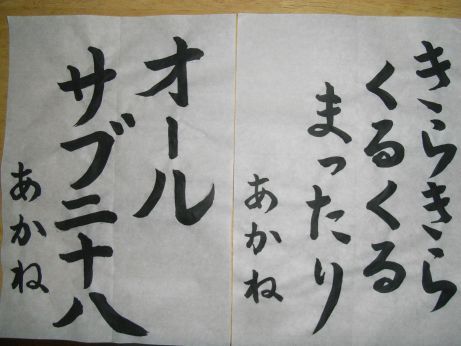 きらきら
くるくる
まったり
あかね
オール
サブ二十八
あかね